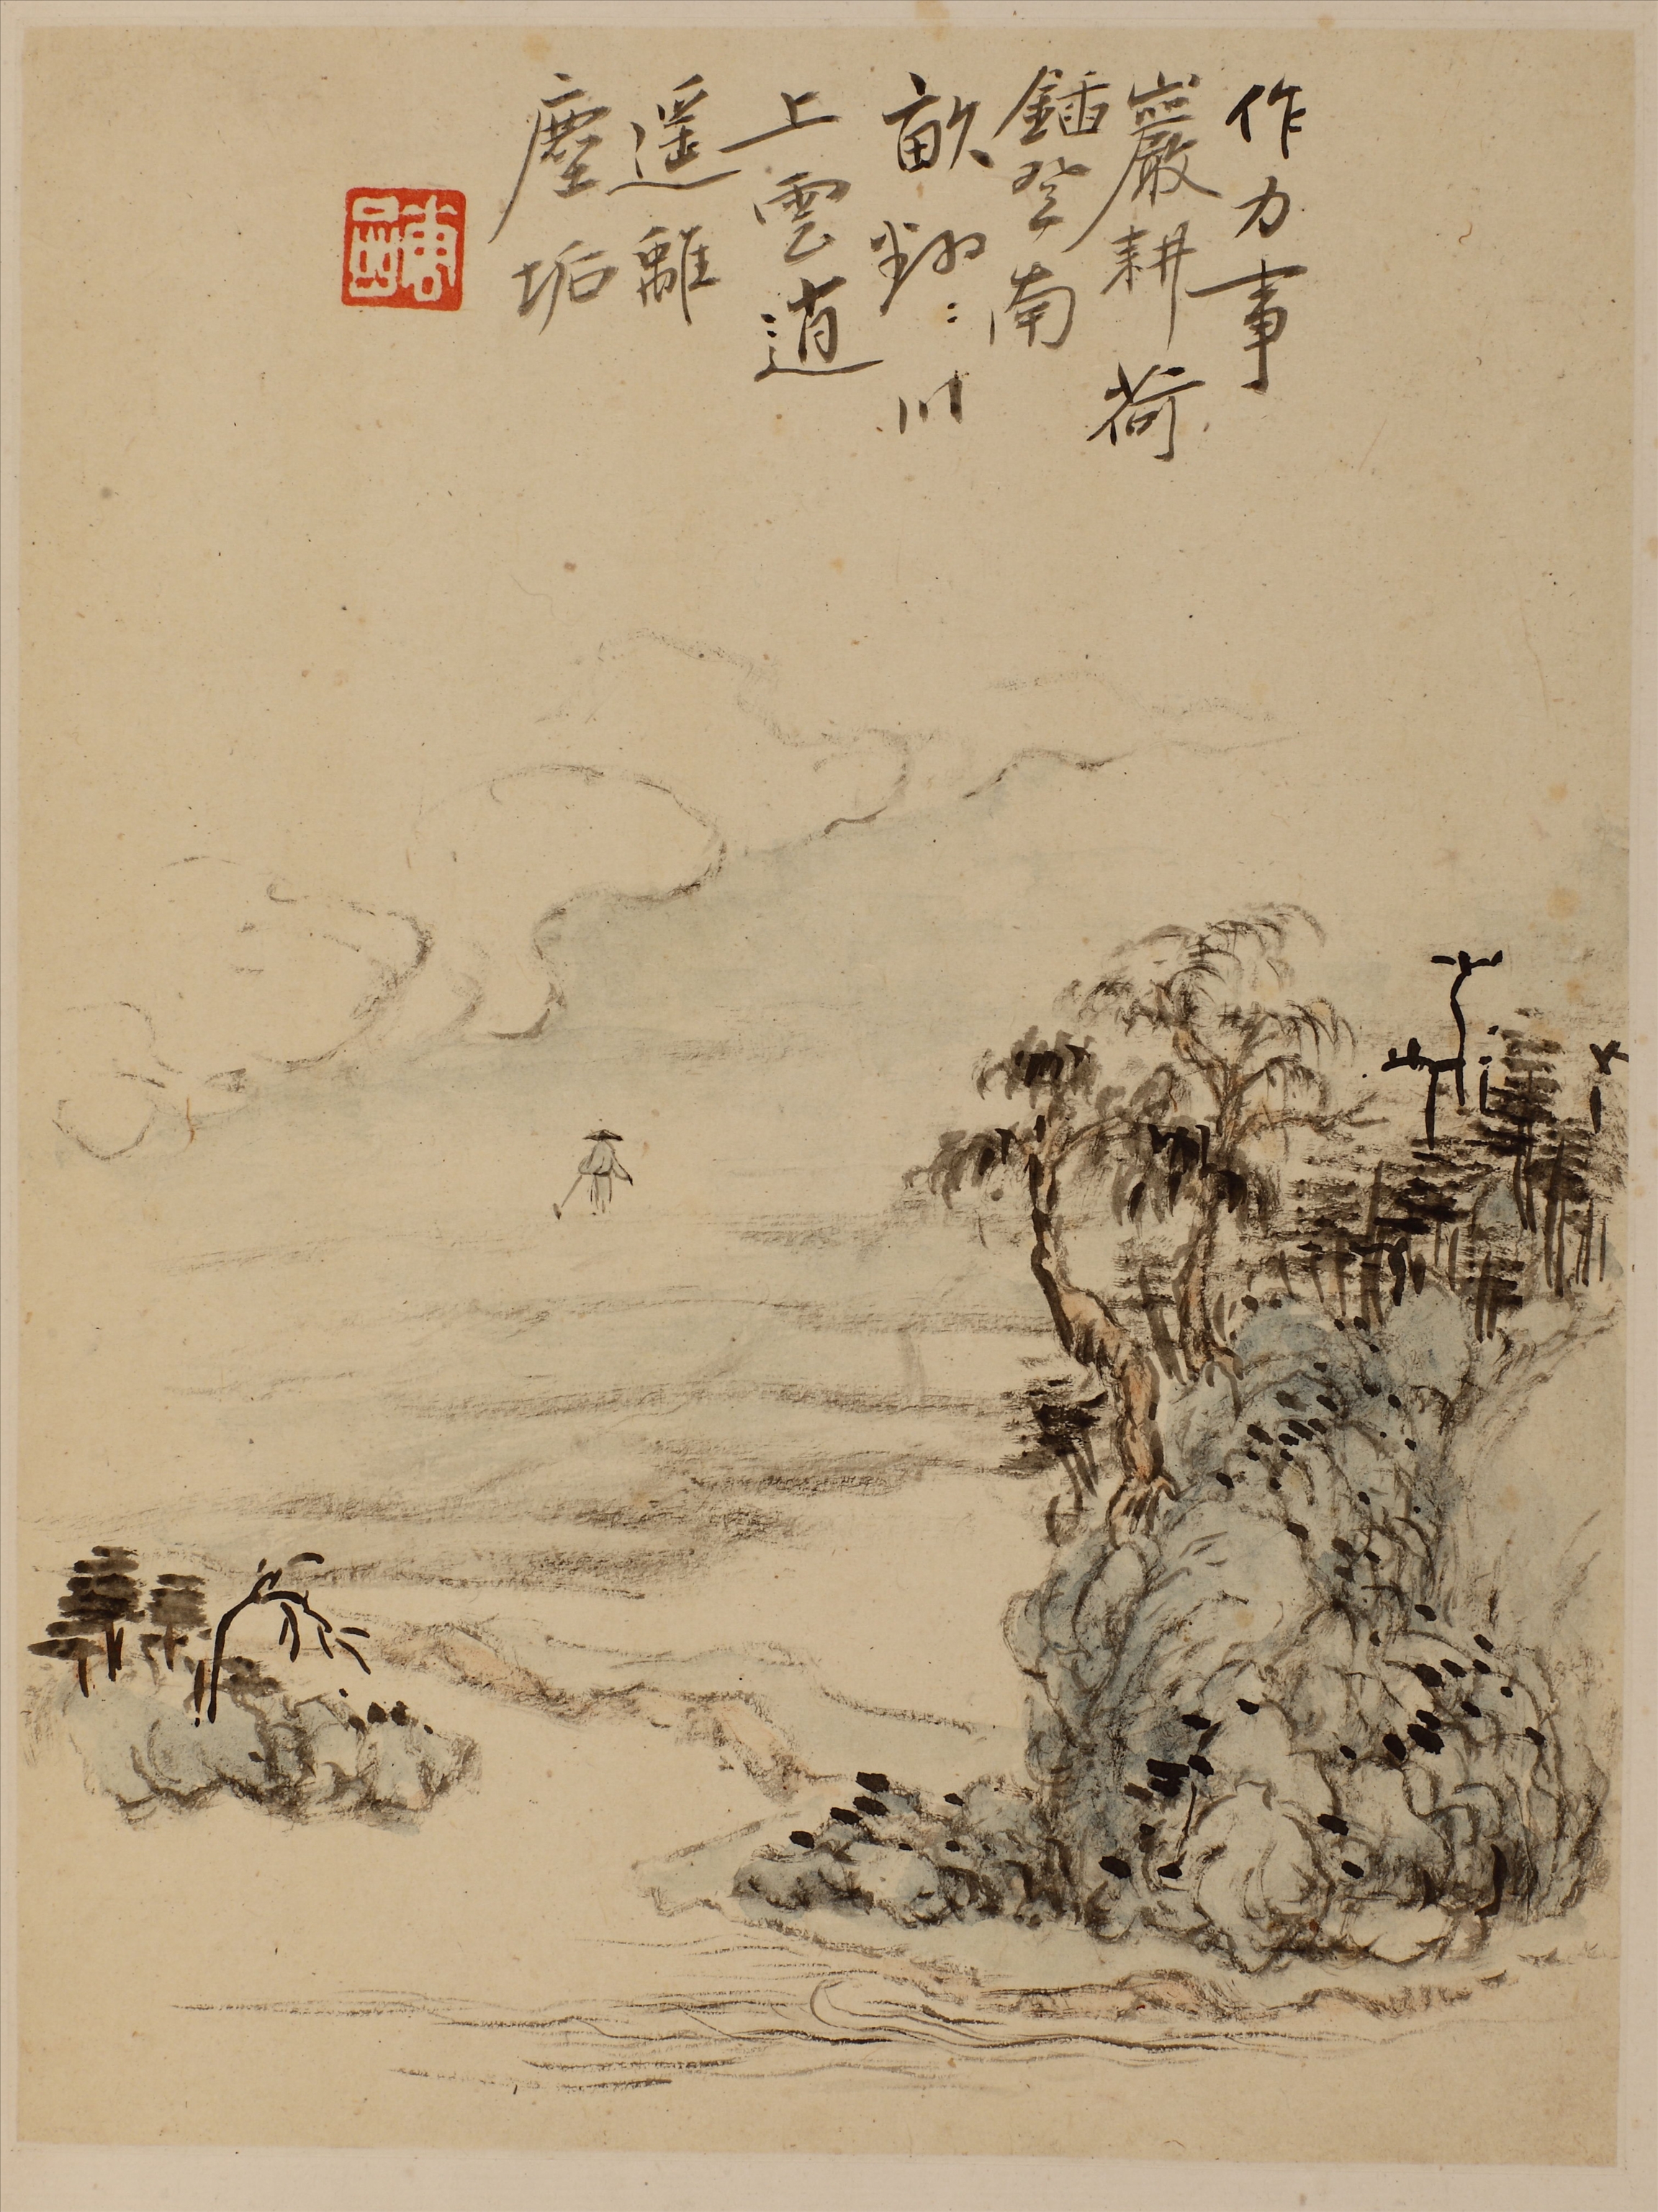 作力事
巖耕荷
鍤登南
畝翔〻川
上雲逍
遥離
塵垢